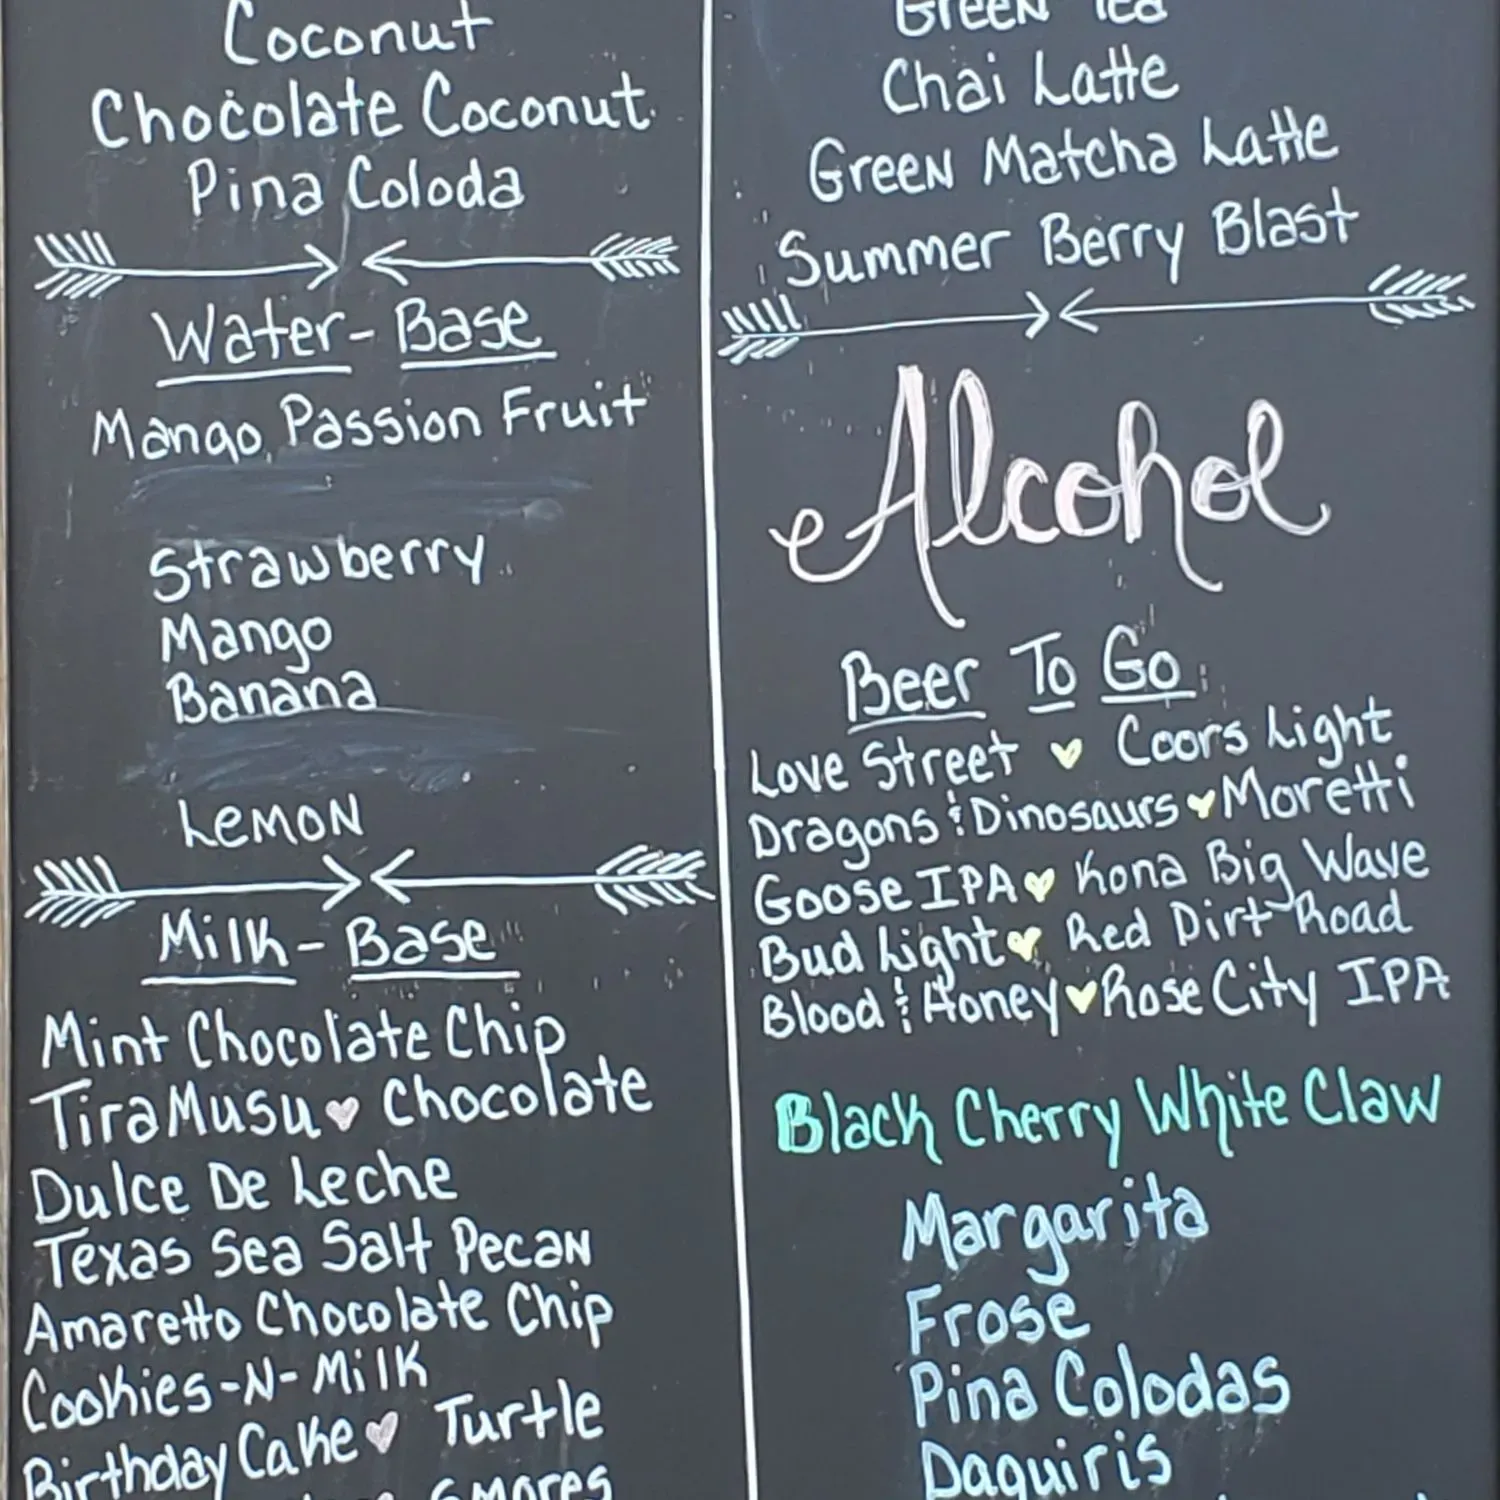 Coconut
Chocolate Coconut
Pina Coloda
Water-Base
Mango Passion Fruit
Strawberry
Mango
Banana
Lemon
Milk-Base
Mint Chocolate Chip
TiraMusu ♥ Chocolate
Dulce De Leche
Texas Sea Salt Pecan
Amaretto Chocolate Chip
Cookies-N-Milk
Birthday Cake ♥ Turtle
Smores
Green Tea
Chai Latte
Green Matcha Latte
Summer Berry Blast
Alcohol
Beer To Go
Love Street ♥ Coors Light
Dragons & Dinosaurs ♥ Moretti
Goose IPA ♥ Kona Big Wave
Bud Light ♥ Red Dirt Road
Blood & Honey ♥ Rose City IPA
Black Cherry White Claw
Margarita
Frose
Pina Colodas
Daquiris